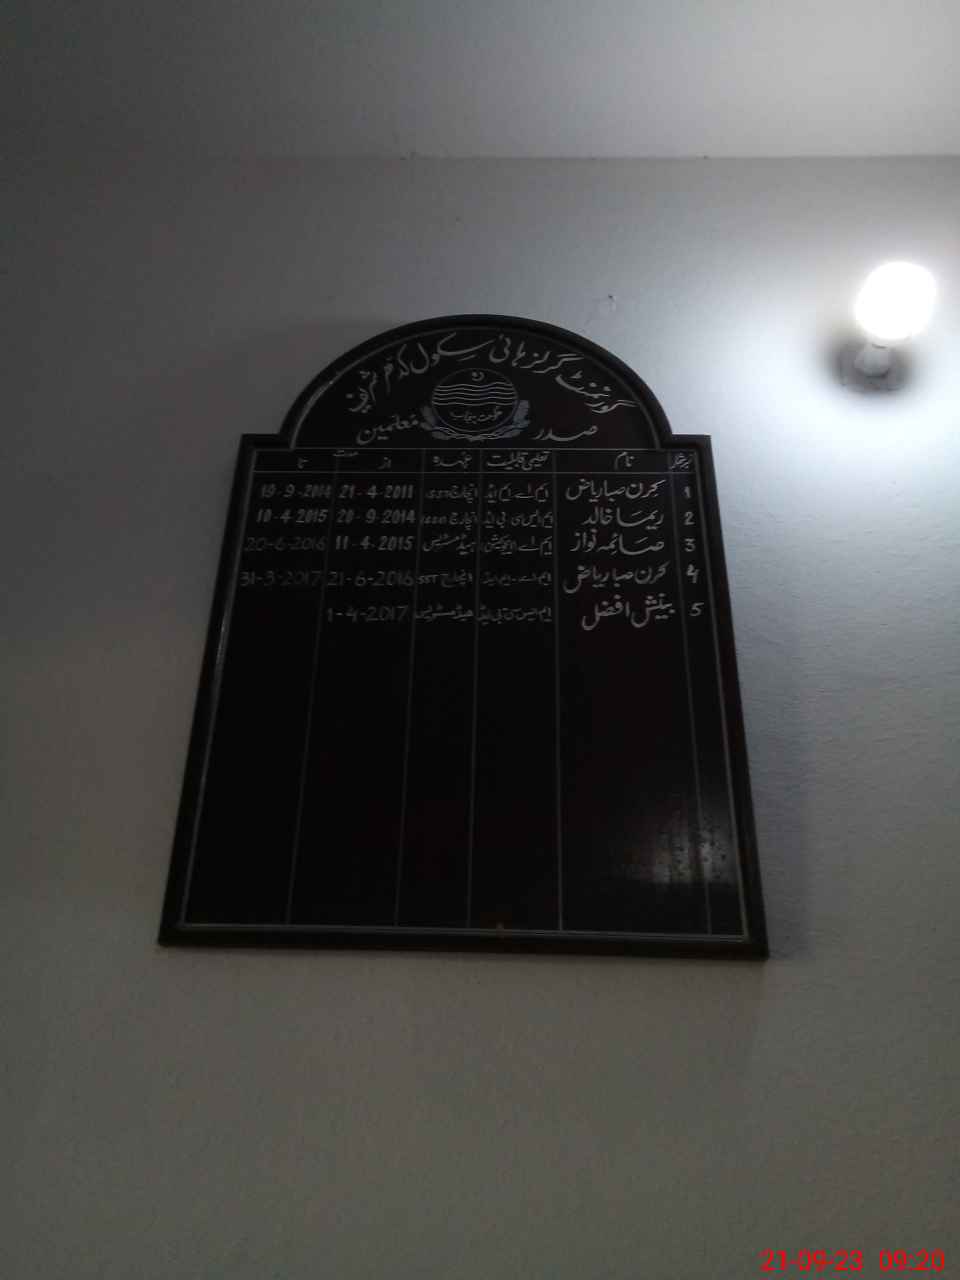 گورنمنٹ گرلز ہائی سکول کدم شریف
حکومت پنجاب
صدر معلمین
نمبر شمار نام تعلیمی قابلیت عہدہ مدت از تا
1 کرن صبا ریاض ایم اے ایم ایڈ انچارج SST 21-4-2011 19-9-2014
2 ریما خالد ایم ایس سی بی ایڈ انچارج 20-9-2014 10-4-2015
3 صائمہ نواز ایم اے ایجوکیشن ہیڈ مسٹریس 11-4-2015 20-6-2016
4 کرن صبا ریاض ایم اے-ایم ایڈ انچارج SST 21-6-2016 31-3-2017
5 بینش افضل ایم ایس سی بی ایڈ ہیڈ مسٹریس 1-4-2017
21-09-23 09:20